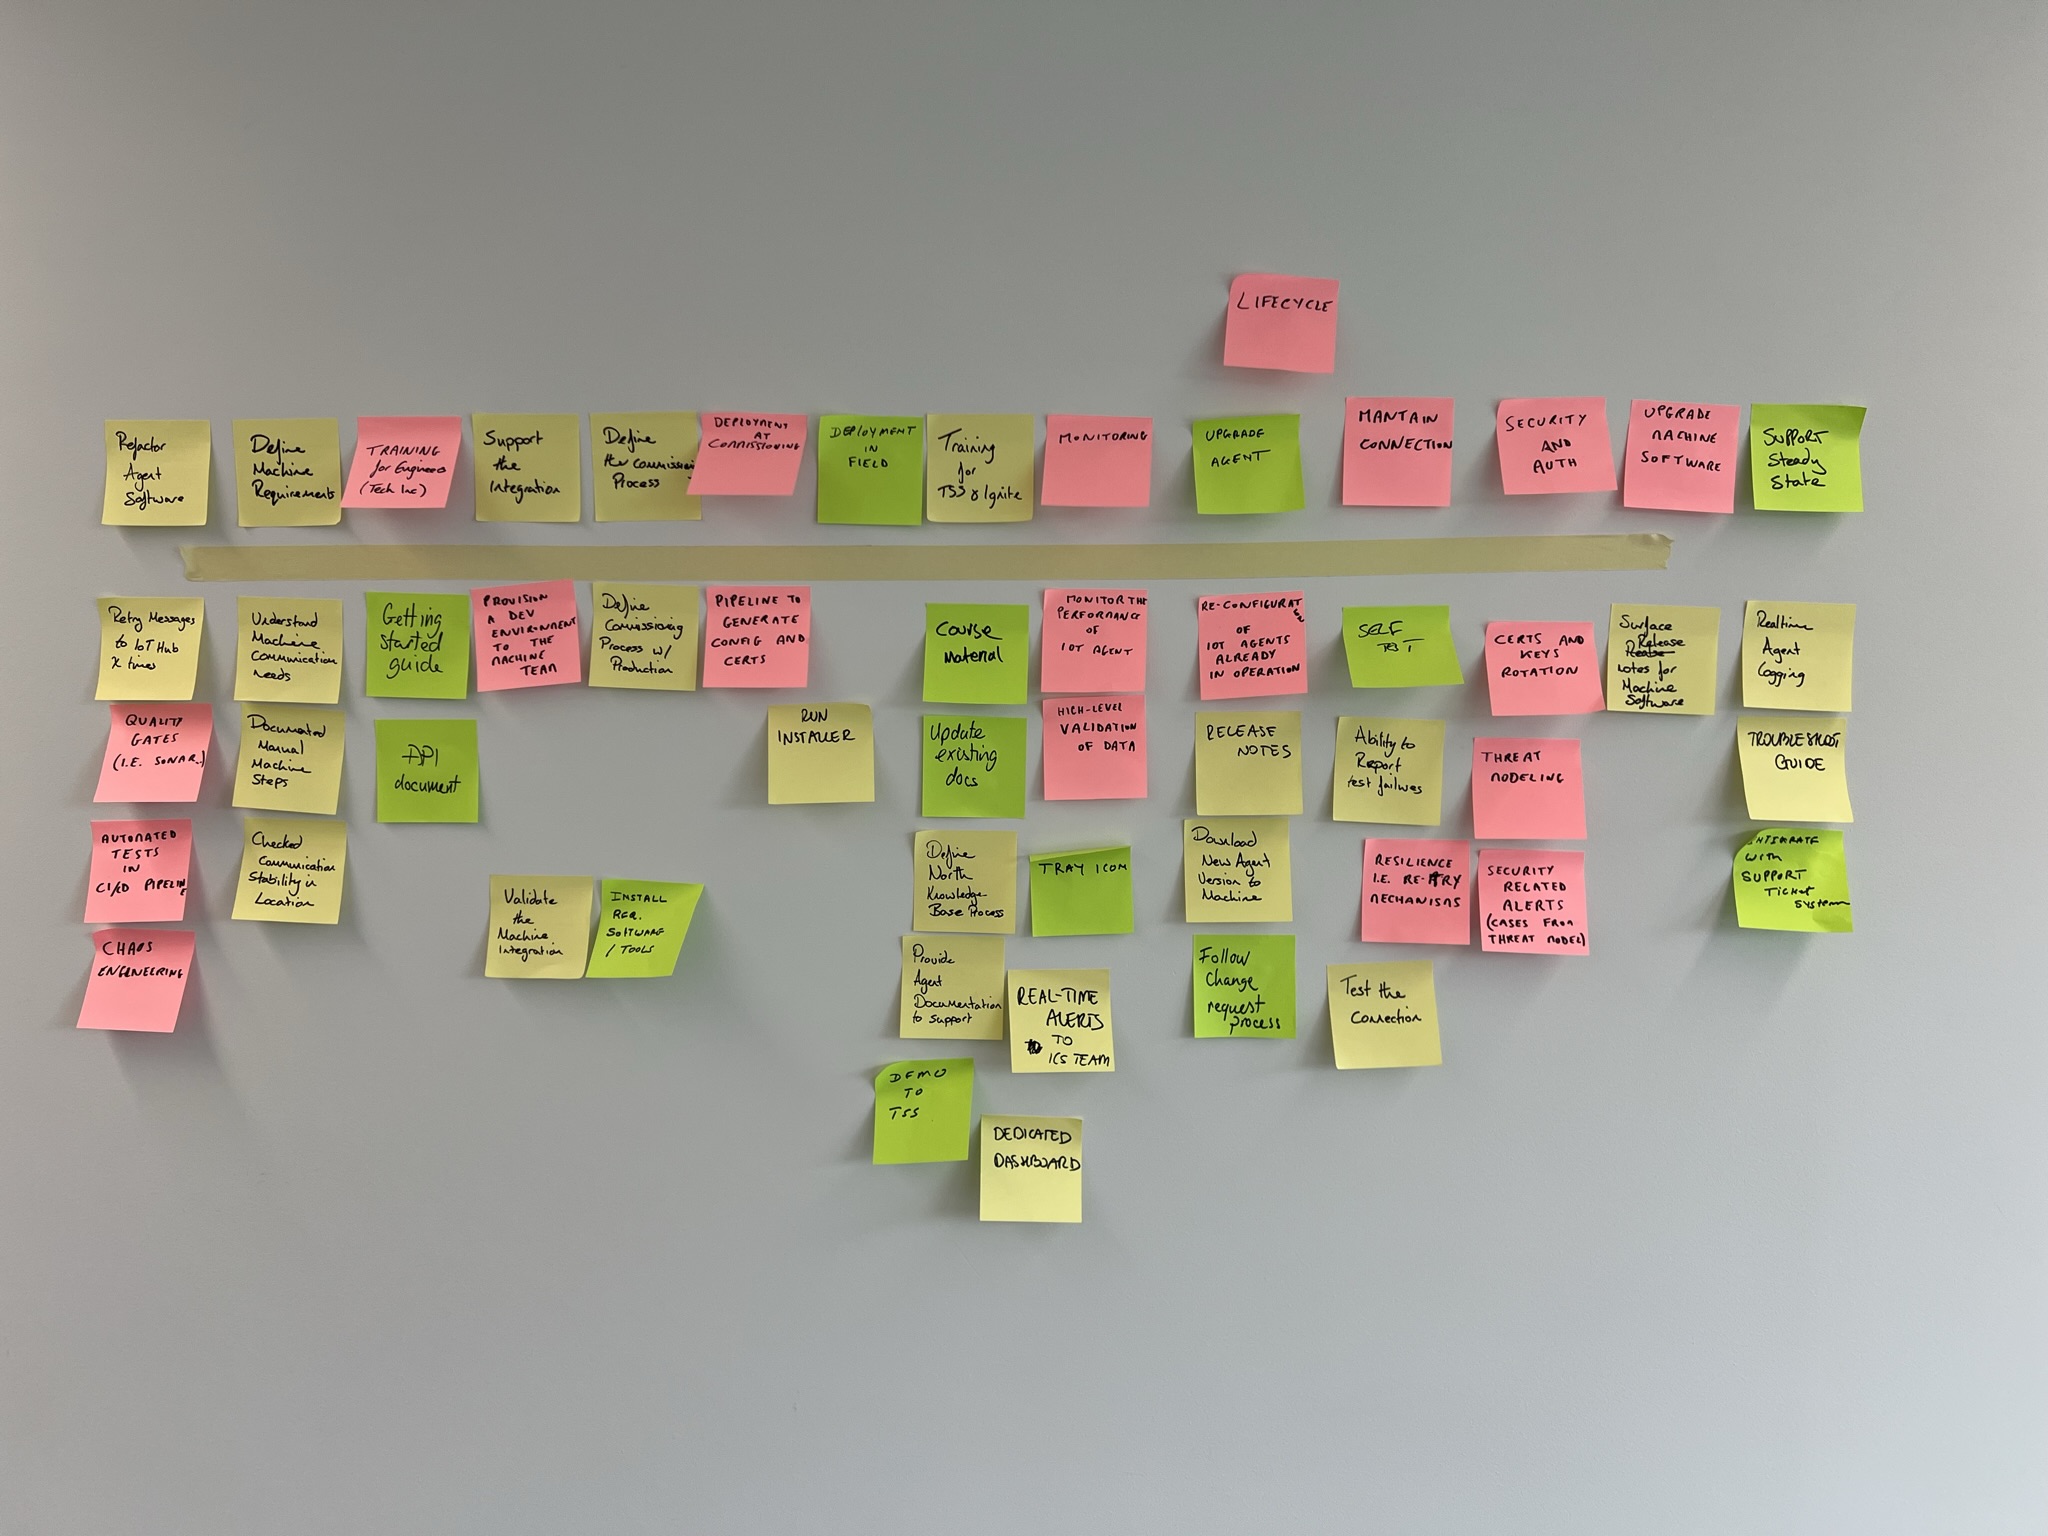 LIFECYCLE
Refactor
Agent
Software
Define
Machine
Requirements
TRAINING
for Engineers
(Tech Inc)
Support
the
Integration
Define
the commissioni
Process
DEPLOYMENT
AT
COMMISSIONING
DEPLOYMENT
IN
FIELD
Training
for
TSS & Ignite
MONITORING
UPGRADE
AGENT
MANTAIN
CONNECTION
SECURITY
AND
AUTH
UPGRADE
MACHINE
SOFTWARE
SUPPORT
Steady
State
Retry Messages
to IoT Hub
X times
QUALITY
GATES
(I.E. SONAR..)
AUTOMATED
TESTS IN
CI/CD PIPELINE
CHAOS
ENGINEERING
Understand
Machine
Communication
needs
Documented
Manual
Machine
Steps
Checked
Communication
Stability in
Location
Getting
started
guide
API
document
PROVISION
A DEV
ENVIRONMENT
TO THE
MACHINE
TEAM
Validate
the
Machine
Integration
Define
Commissioning
Process w/
Production
INSTALL
REQ.
SOFTWARE
/ TOOLS
PIPELINE TO
GENERATE
CONFIG AND
CERTS
RUN
INSTALLER
Course
Material
Update
existing
docs
Define
North
Knowledge
Base Process
Provide
Agent
Documentation
to Support
DEMO
TO
TSS
MONITOR THE
PERFORMANCE
OF
IOT AGENT
HIGH-LEVEL
VALIDATION
OF DATA
TRAY ICON
REAL-TIME
ALERTS
TO
ICS TEAM
DEDICATED
DASHBOARD
RE-CONFIGURATION
OF
IOT AGENTS
ALREADY
IN OPERATION
RELEASE
NOTES
Download
New Agent
Version to
Machine
Follow
Change
request
process
SELF
TEST
Ability to
Report
test failures
RESILIENCE
I.E. RE-TRY
MECHANISMS
Test the
Connection
CERTS AND
KEYS
ROTATION
THREAT
MODELING
SECURITY
RELATED
ALERTS
(CASES FROM
THREAT MODEL)
Surface
Release
notes for
Machine
Software
Realtime
Agent
Logging
TROUBLESHOOT
GUIDE
INTIMRATE
WITH
SUPPORT
TICKET
SYSTEM